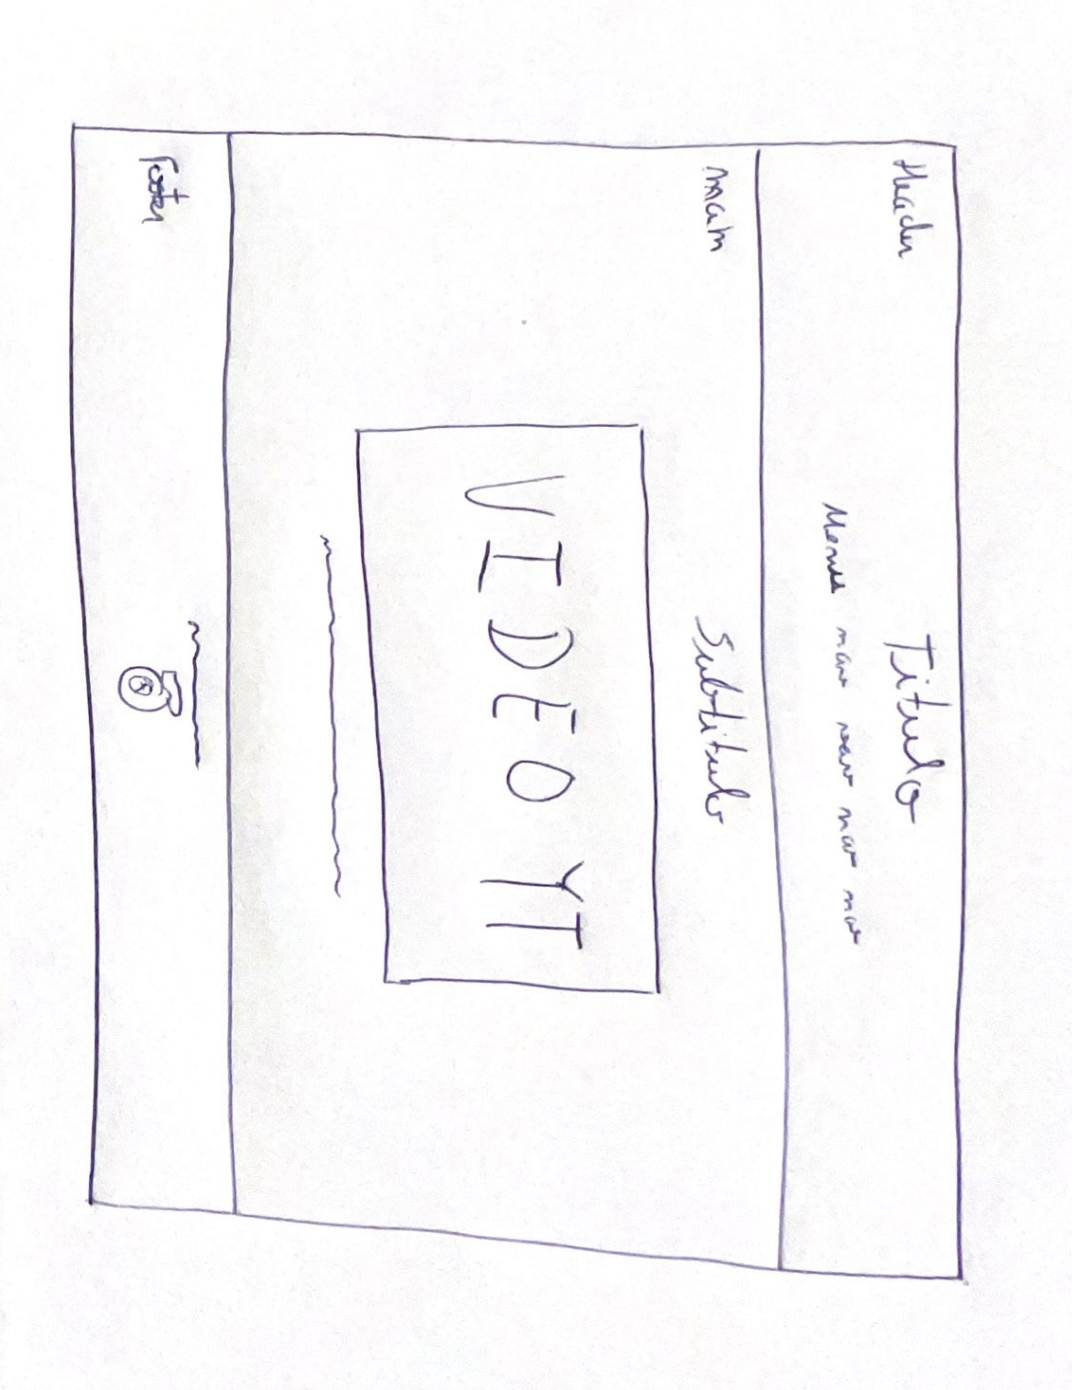 Header
Titulo
Menu nav nav nav nav
main
Subtitulo
VIDEO YT
Footer